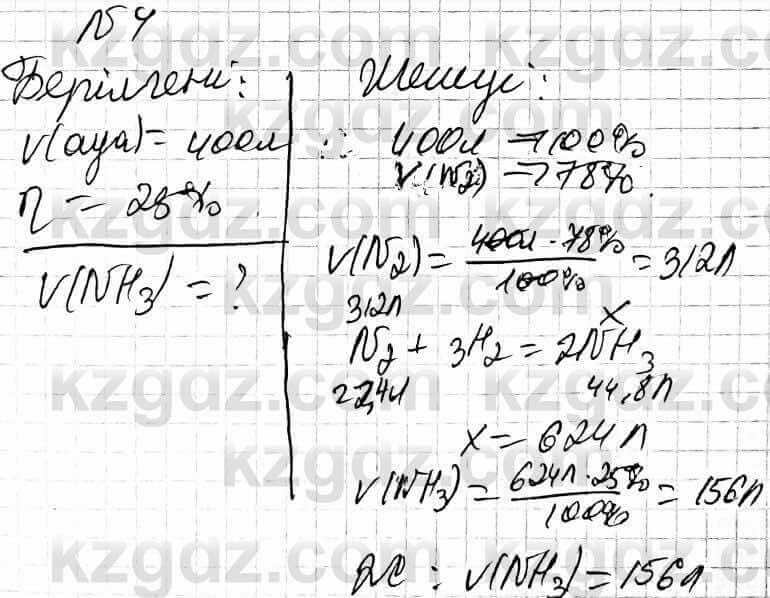 №4
Берілгені:
V(ауа) = 400л
η = 25%
V(NH₃) = ?
Шешуі:
400л → 100%
V(N₂) → 78%
V(N₂) = 400л · 78% / 100% = 312л
312л x
N₂ + 3H₂ = 2NH₃
22,4л 44,8л
x = 624л
V(NH₃) = 624л · 25% / 100% = 156л
Ж: V(NH₃) = 156л
kzgdz.com